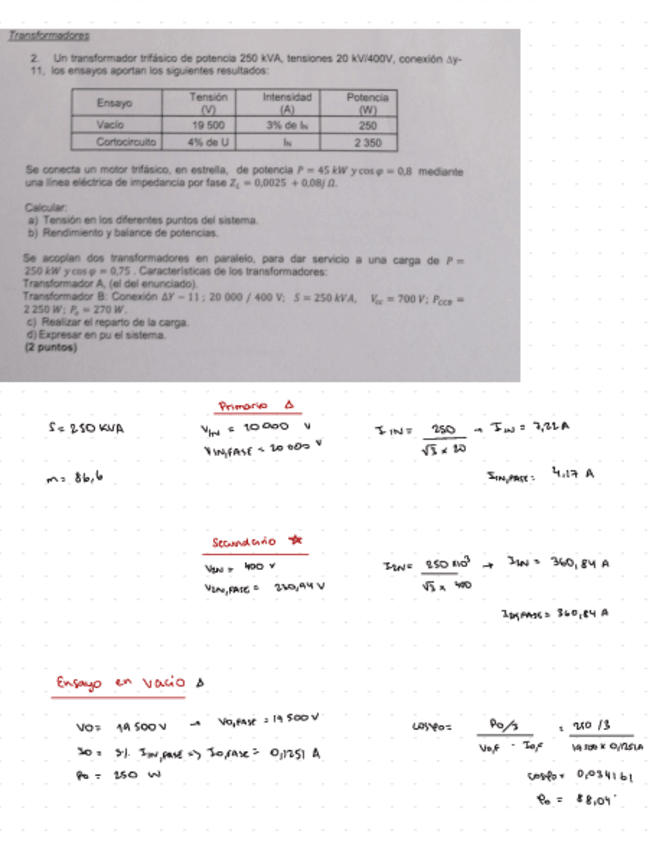 Transformadores
2. Un transformador trifásico de potencia 250 kVA, tensiones 20 kV/400V, conexión Δy-
11, los ensayos aportan los siguientes resultados:
Ensayo Tensión (V) Intensidad (A) Potencia (W)
Vacío 19 500 3% de I_N 250
Cortocircuito 4% de U I_N 2 350
Se conecta un motor trifásico, en estrella, de potencia P = 45 kW y cos φ = 0,8 mediante
una línea eléctrica de impedancia por fase Z_L = 0,0025 + 0,08j Ω.
Calcular:
a) Tensión en los diferentes puntos del sistema.
b) Rendimiento y balance de potencias.
Se acoplan dos transformadores en paralelo, para dar servicio a una carga de P =
250 kW y cos φ = 0,75 . Características de los transformadores:
Transformador A, (el del enunciado).
Transformador B: Conexión ΔY − 11 ; 20 000 / 400 V; S = 250 kVA, V_cc = 700 V; P_CCB =
2 250 W; P_o = 270 W.
c) Realizar el reparto de la carga.
d) Expresar en pu el sistema.
(2 puntos)
Primario Δ
S = 250 KVA
V_1N = 20 000 V
I_1N = 250 / √3 x 20 → I_1N = 7,22 A
V_1N,FASE = 20 000 V
m = 86,6
I_1N,FASE = 4,17 A
Secundario ☆
V_2N = 400 V
I_2N = 250 x10³ / √3 x 400 → I_2N = 360,84 A
V_2N,FASE = 230,94 V
I_2N,FASE = 360,84 A
Ensayo en vacío Δ
V0 = 19 500 V → V0,FASE = 19 500 V
cosφ0 = P0/3 / V0,F · I0,F = 250 /3 / 19 500 x 0,1251A
I0 = 3% I_1N,FASE => I0,FASE = 0,1251 A
P0 = 250 W
cosφ0 = 0,034161
φ0 = 88,04°